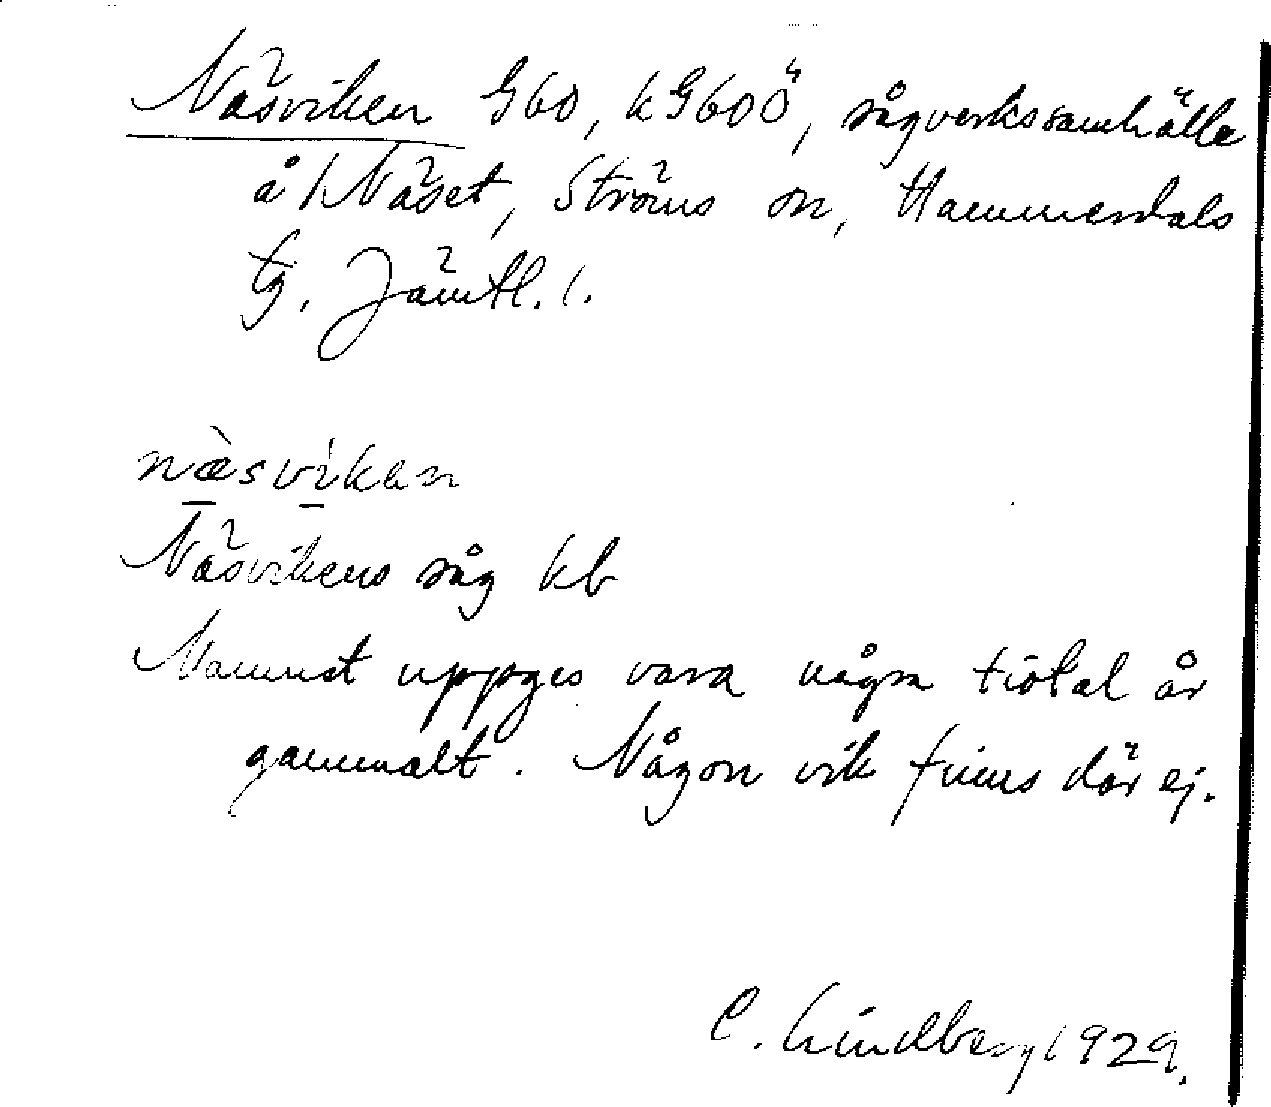 Näsviken G60, kG60Ö, sågverkssamhälle
å 1 Näset, Ströms sn, Hammerdals
tg. Jämtl. l.
næ̀svi̍kan
Näsvikens såg kb
Namnet uppges vara några tiotal år
gammalt. Någon vik finns där ej.
C. Lindberg 1929.